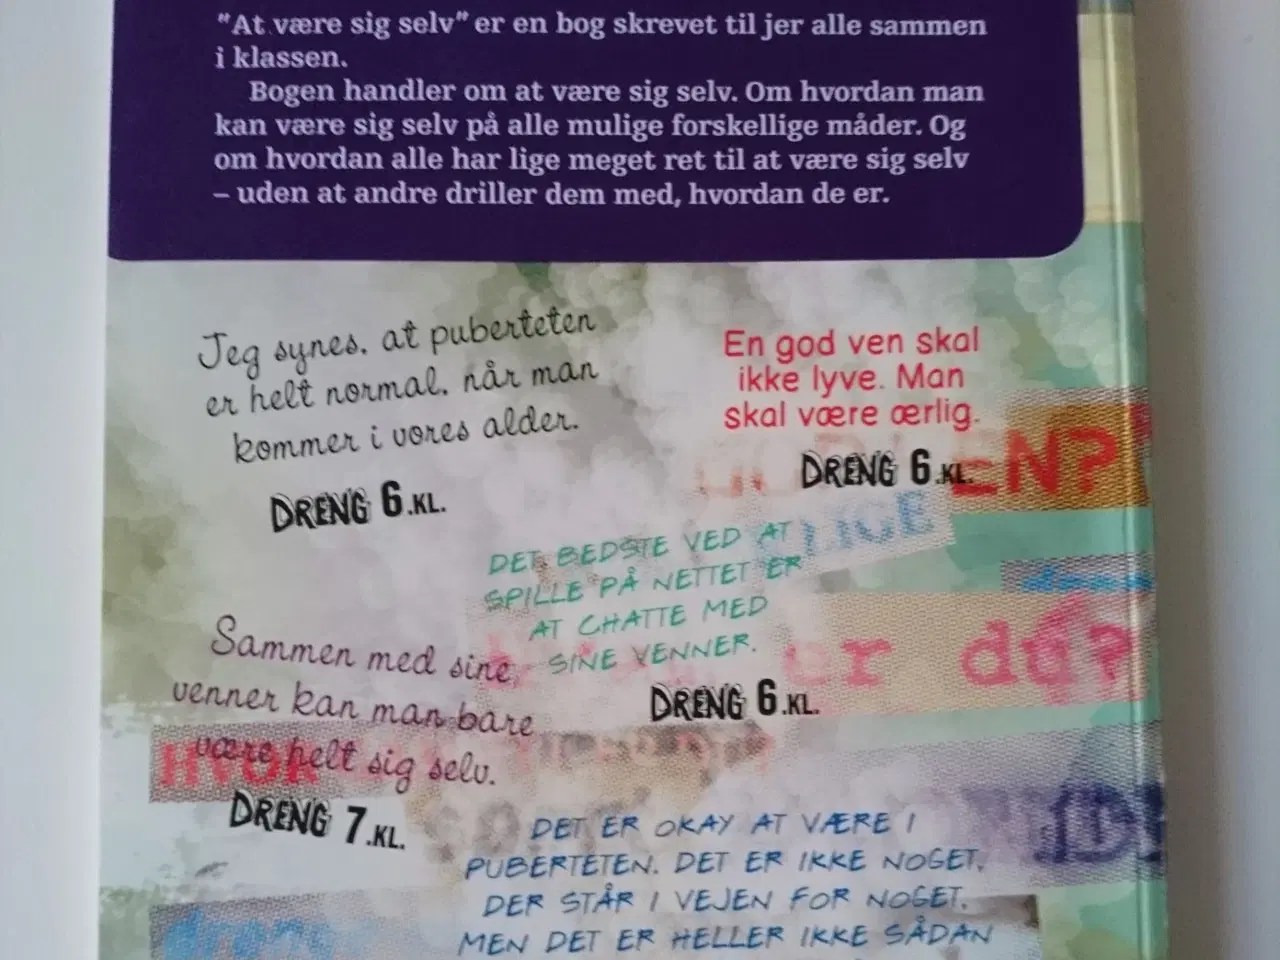 "At være sig selv" er en bog skrevet til jer alle sammen
i klassen.
Bogen handler om at være sig selv. Om hvordan man
kan være sig selv på alle mulige forskellige måder. Og
om hvordan alle har lige meget ret til at være sig selv
– uden at andre driller dem med, hvordan de er.
Jeg synes, at puberteten
er helt normal, når man
kommer i vores alder.
DRENG 6.KL.
En god ven skal
ikke lyve. Man
skal være ærlig.
DRENG 6.KL.
EN?
LIGE
DET BEDSTE VED AT
SPILLE PÅ NETTET ER
AT CHATTE MED
SINE VENNER.
DRENG 6.KL.
er du?
Sammen med sine
venner kan man bare
være helt sig selv.
DRENG 7.KL.
HVOR
DET ER OKAY AT VÆRE I
PUBERTETEN. DET ER IKKE NOGET,
DER STÅR I VEJEN FOR NOGET.
MEN DET ER HELLER IKKE SÅDAN